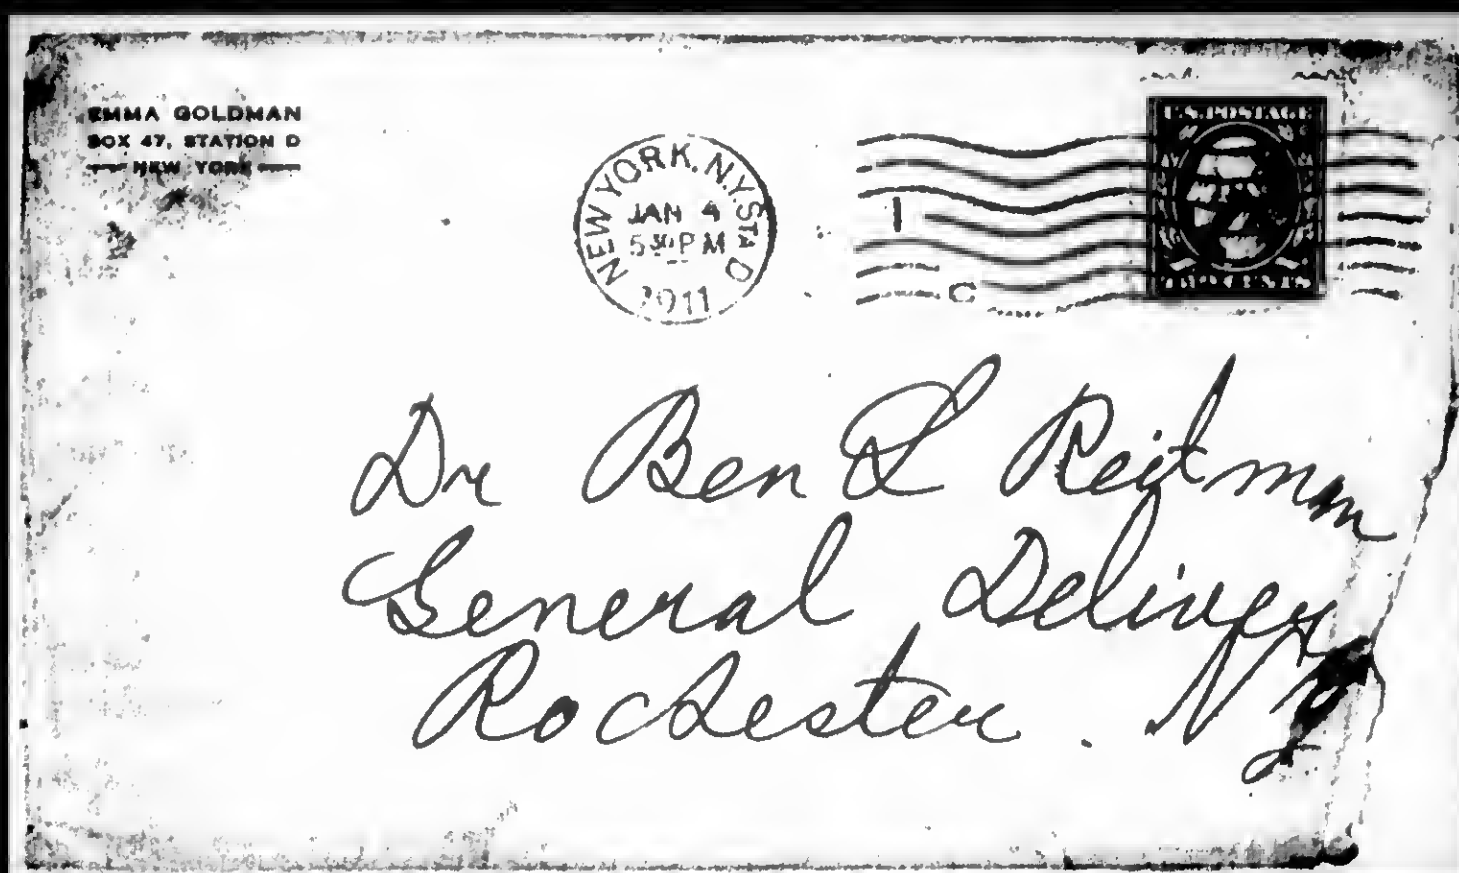 EMMA GOLDMAN
BOX 47, STATION D
NEW YORK
NEW YORK, N.Y. STA D
JAN 4
5 30 PM
1911
1
C
U.S. POSTAGE
TWO CENTS
Dr Ben L Reitman
General Delivery
Rochester. NY